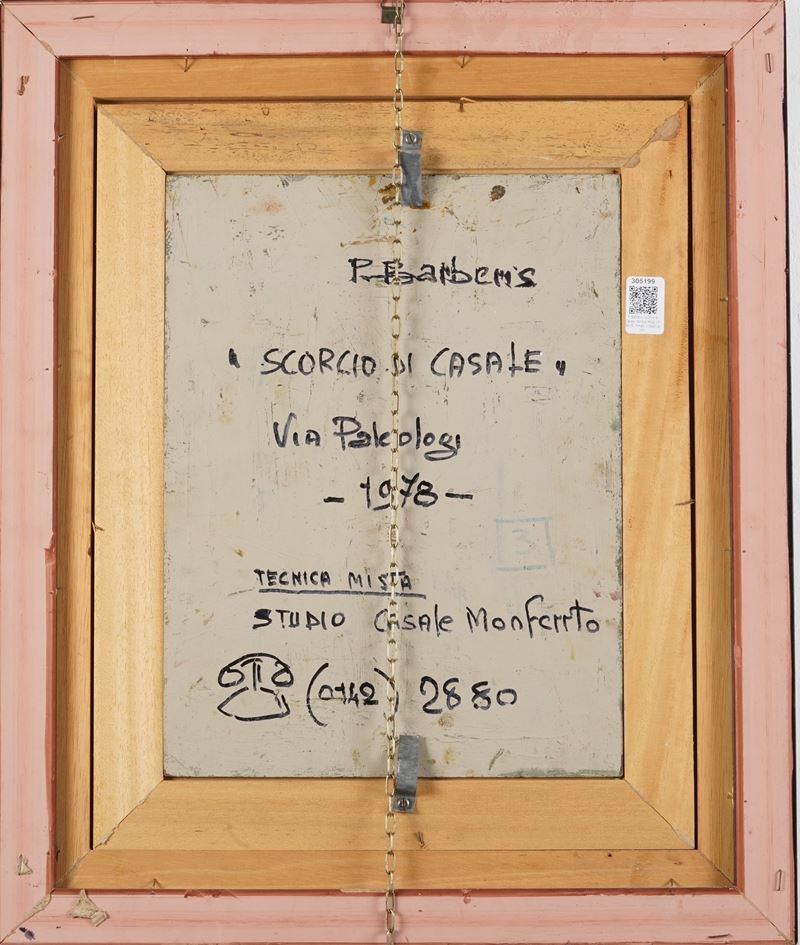 P. Barberis
" SCORCIO DI CASALE "
Via Paleologi
- 1978 -
3
TECNICA MISTA
STUDIO Casale Monferrto
(0142) 2880
305199